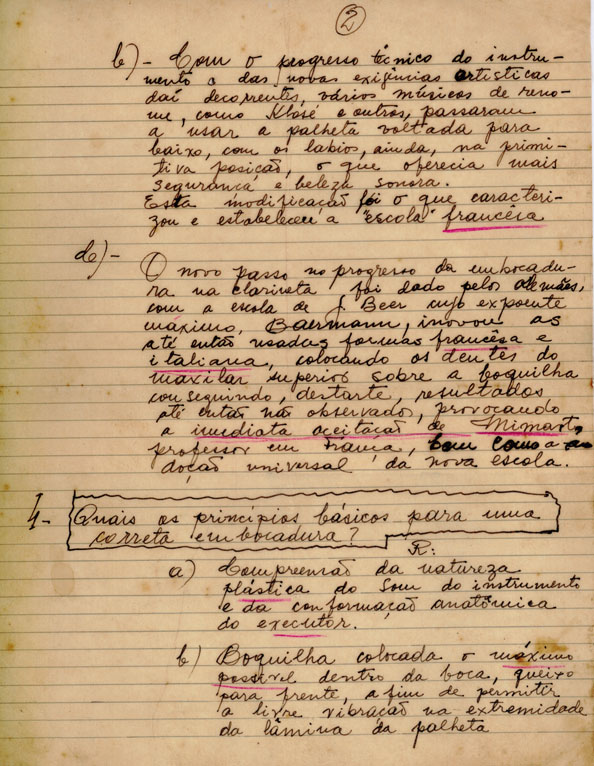 2
b) - Com o progresso técnico do instru-
mento e das novas exigências artísticas
daí decorrentes, vários músicos de reno-
me, como Klosé e outros, passaram
a usar a palheta voltada para
baixo, com os labios, ainda, na primi-
tiva posição, o que oferecia mais
segurança e beleza sonora.
Esta modificação foi o que caracteri-
zou e estabeleceu a "escola" francêsa
O novo passo no progresso da embocadu-
ra na clarineta foi dado pelos alemães,
com a escola de J. Beer cujo expoente
máximo, Baermann, inovou as
até então usadas formas francêsa e
italiana, colocando os dentes do
maxilar superior sobre a boquilha
conseguindo, destarte, resultados
até então não observados, provocando
a imediata aceitação de Mimart,
professor em França, bem como a a-
doção universal da nova escola.
4- Quais os princípios básicos para uma
correta embocadura?
R:
a) Compreensão da natureza
plástica do som do instrumento
e da conformação anatômica
do executor.
b) Boquilha colocada o máximo
possível dentro da boca, queixo
para frente, a fim de permitir
a livre vibração na extremidade
da lâmina da palheta